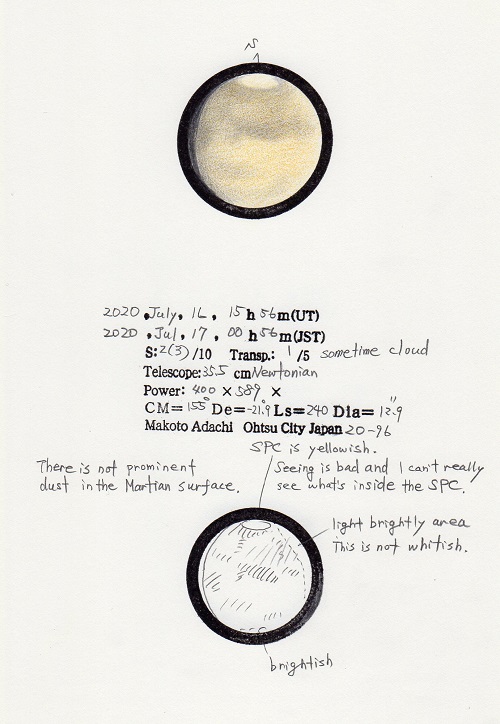 S
2020, July, 16, 15h 56m(UT)
2020, Jul, 17, 00h 56m(JST)
S: 2(3)/10 Transp.: 1/5 sometime cloud
Telescope: 35.5 cm Newtonian
Power: 400 × 589 ×
CM= 155° De= -21.9° Ls= 240 Dia= 12.9"
Makoto Adachi Ohtsu City Japan 20-96
SPC is yellowish.
There is not prominent
dust in the Martian surface.
Seeing is bad and I can't really
see what's inside the SPC.
light brightly area
This is not whitish.
brightish